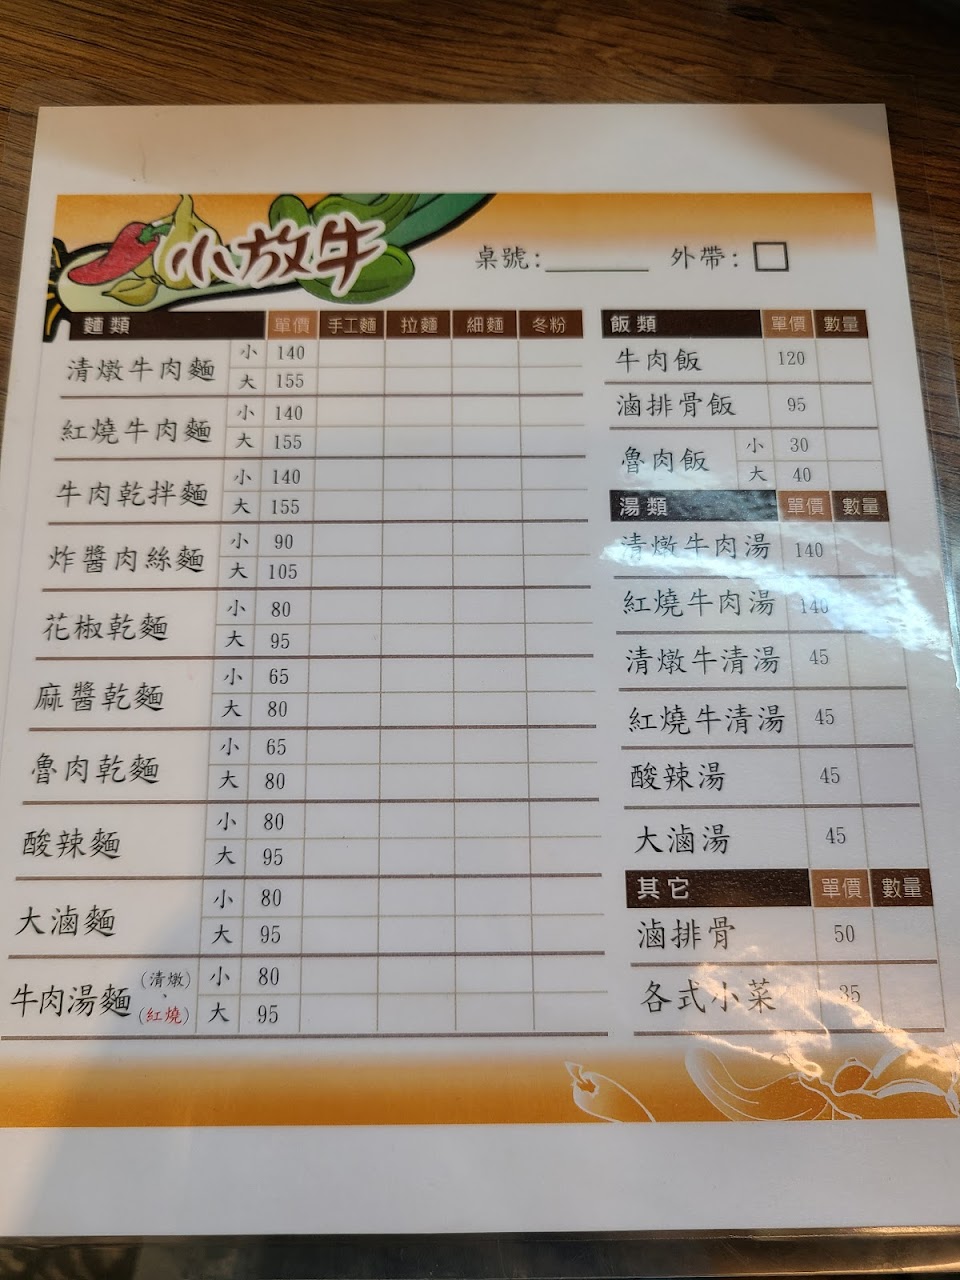 小放牛
桌號:
外帶:
麵類 單價 手工麵 拉麵 細麵 冬粉
清燉牛肉麵 小 140
大 155
紅燒牛肉麵 小 140
大 155
牛肉乾拌麵 小 140
大 155
炸醬肉絲麵 小 90
大 105
花椒乾麵 小 80
大 95
麻醬乾麵 小 65
大 80
魯肉乾麵 小 65
大 80
酸辣麵 小 80
大 95
大滷麵 小 80
大 95
牛肉湯麵 (清燉)、(紅燒) 小 80
大 95
飯類 單價 數量
牛肉飯 120
滷排骨飯 95
魯肉飯 小 30
大 40
湯類 單價 數量
清燉牛肉湯 140
紅燒牛肉湯 140
清燉牛清湯 45
紅燒牛清湯 45
酸辣湯 45
大滷湯 45
其它 單價 數量
滷排骨 50
各式小菜 35